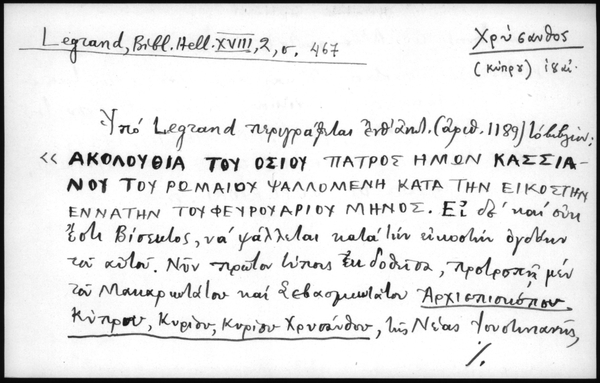 Legrand, Bibl. Hell. XVIII, 2, σ. 467
Χρύσανθος
(Κύπρου)
Ὑπό Legrand περιγράφεται (ἀριθ. 1189) τό βιβλίον:
« ΑΚΟΛΟΥΘΙΑ ΤΟΥ ΟΣΙΟΥ ΠΑΤΡΟΣ ΗΜΩΝ ΚΑΣΣΙΑ-
ΝΟΥ ΤΟΥ ΡΩΜΑΙΟΥ ΨΑΛΛΟΜΕΝΗ ΚΑΤΑ ΤΗΝ ΕΙΚΟΣΤΗΝ
ΕΝΝΑΤΗΝ ΤΟΥ ΦΕΥΡΟΥΑΡΙΟΥ ΜΗΝΟΣ. Εἰ δέ καί οὐκ
ἔστι Βίσεκτος, νά ψάλλεται κατά τήν εἰκοστήν ὀγδόην
τοῦ αὐτοῦ. Νῦν πρῶτον τύποις ἐκδοθεῖσα, προτροπῇ μέν
τοῦ Μακαριωτάτου καί Σεβασμιωτάτου Ἀρχιεπισκόπου
Κύπρου, Κυρίου, Κυρίου Χρυσάνθου, τῆς Νέας Ἰουστινιανῆς,
·/.